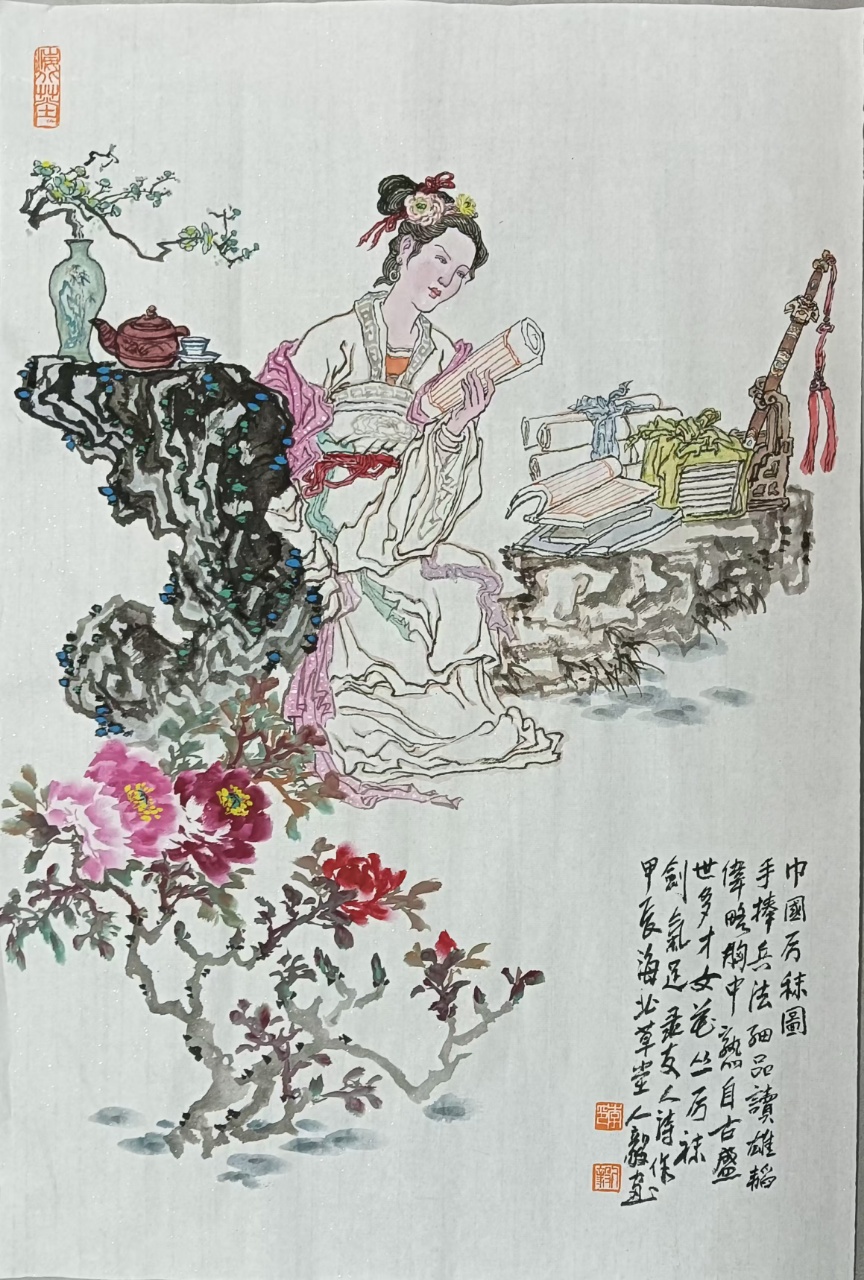 巾國厉秣圖
手捧兵法細品讀雄韜
偉略胸中熟自古盛
世多才女花丛厉秣
劍氣足录友人詩作
甲辰海北草堂人毅画